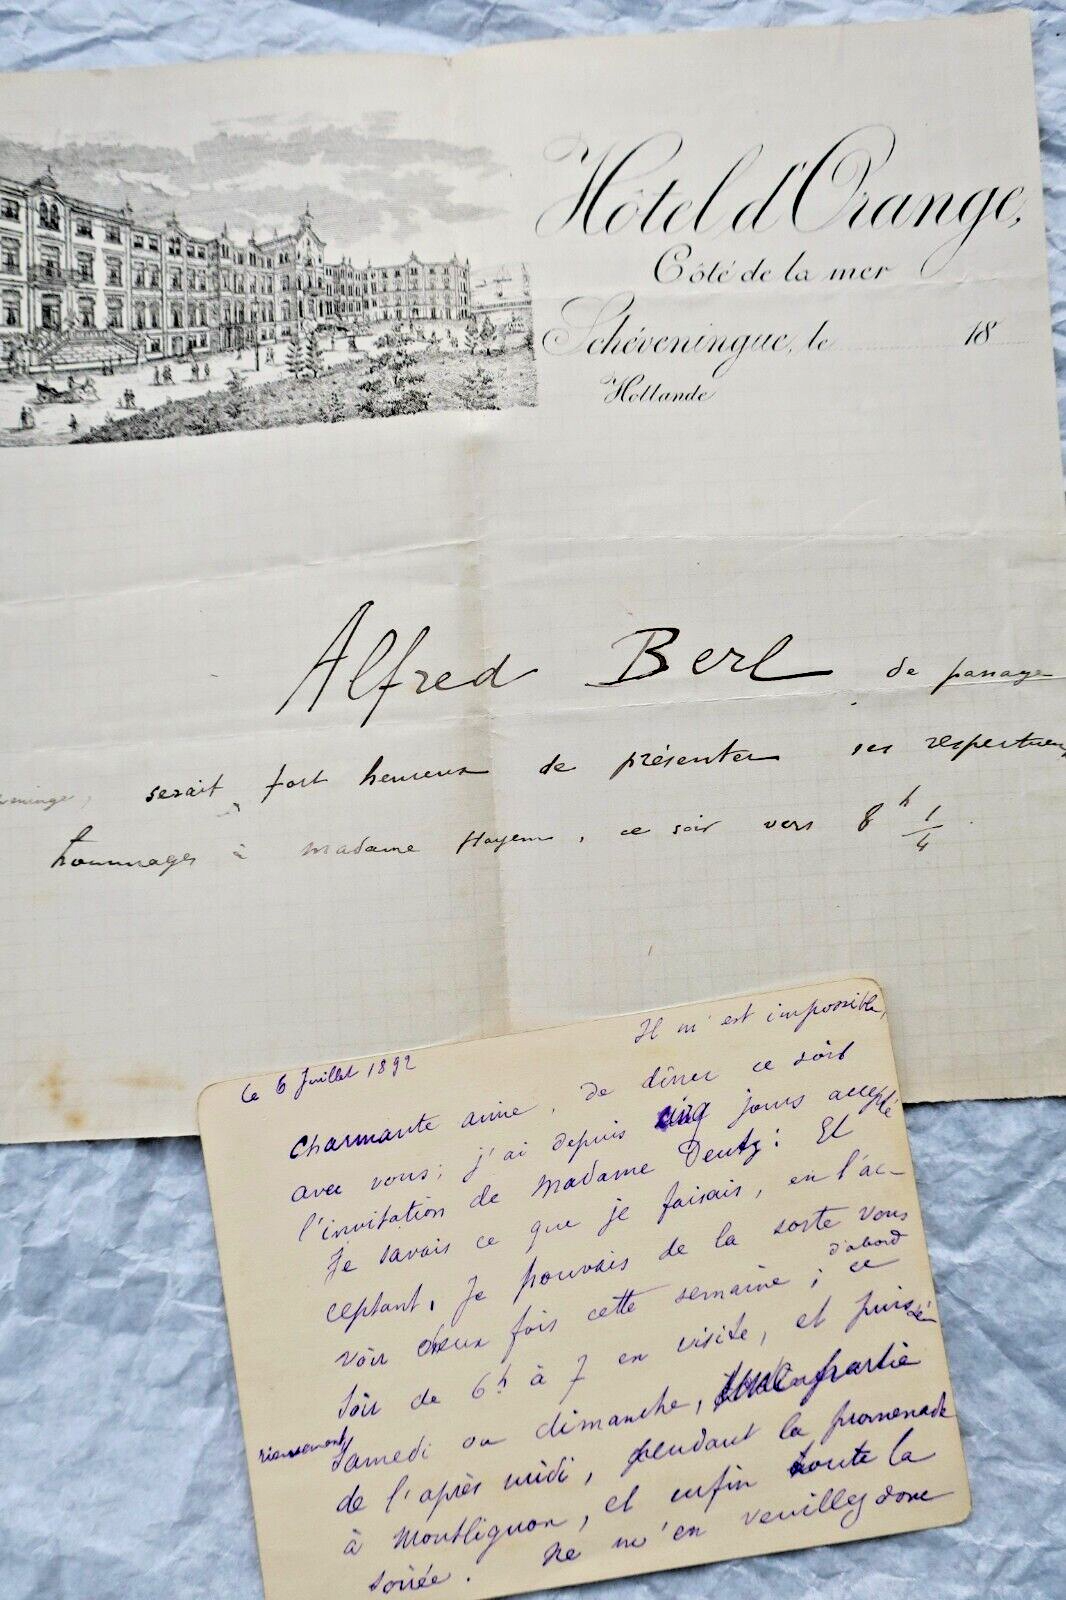 Hôtel d'Orange,
Côté de la mer
Schéveningue, le 18
Hollande
Alfred Berl de passage
serait fort heureux de présenter ses respectueux
hommages à Madame Hayem, ce soir vers 8 h 1/4.
Le 6 Juillet 1892
Il m'est impossible,
charmante amie, de dîner ce soir
avec vous; j'ai depuis cinq jours accepté
l'invitation de Madame Deutz: Et
Je savais ce que je faisais, en l'ac-
ceptant, Je pouvais de la sorte vous
voir deux fois cette semaine; d'abord ce
soir de 6h à 7 en visite, et puis
Samedi ou dimanche, en partie
de l'après midi, pendant la promenade
à Montlignon, et enfin toute la
soirée. Ne m'en veuillez donc